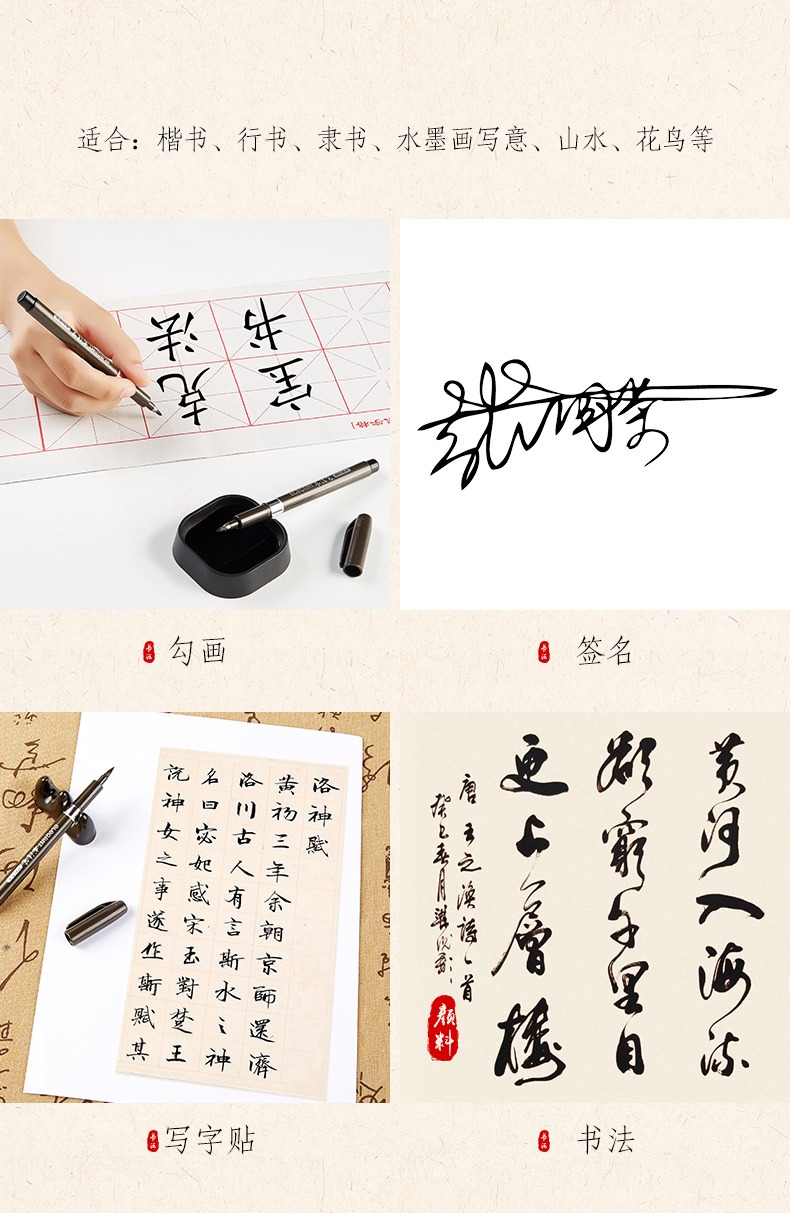 适合：楷书、行书、隶书、水墨画写意、山水、花鸟等
书法
宝克
勾画
签名
洛神赋
黄初三年余朝京師還濟
洛川古人有言斯水之神
名曰宓妃感宋玉對楚王
說神女之事遂作斯賦其
黄河入海流
欲窮千里目
更上一層樓
唐王之渙詩一首
颜料
写字贴
书法